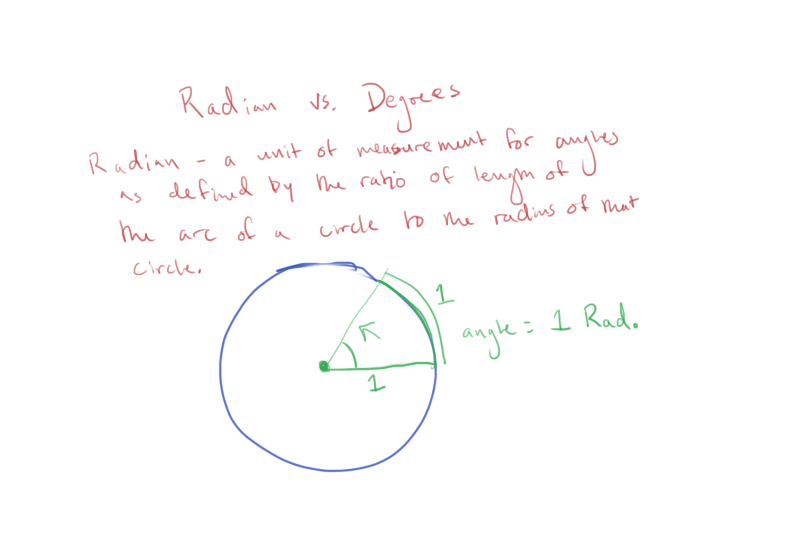 Radian vs. Degrees
Radian - a unit of measurement for angles
as defined by the ratio of length of
the arc of a circle to the radius of that
circle.
1
angle = 1 Rad.
1